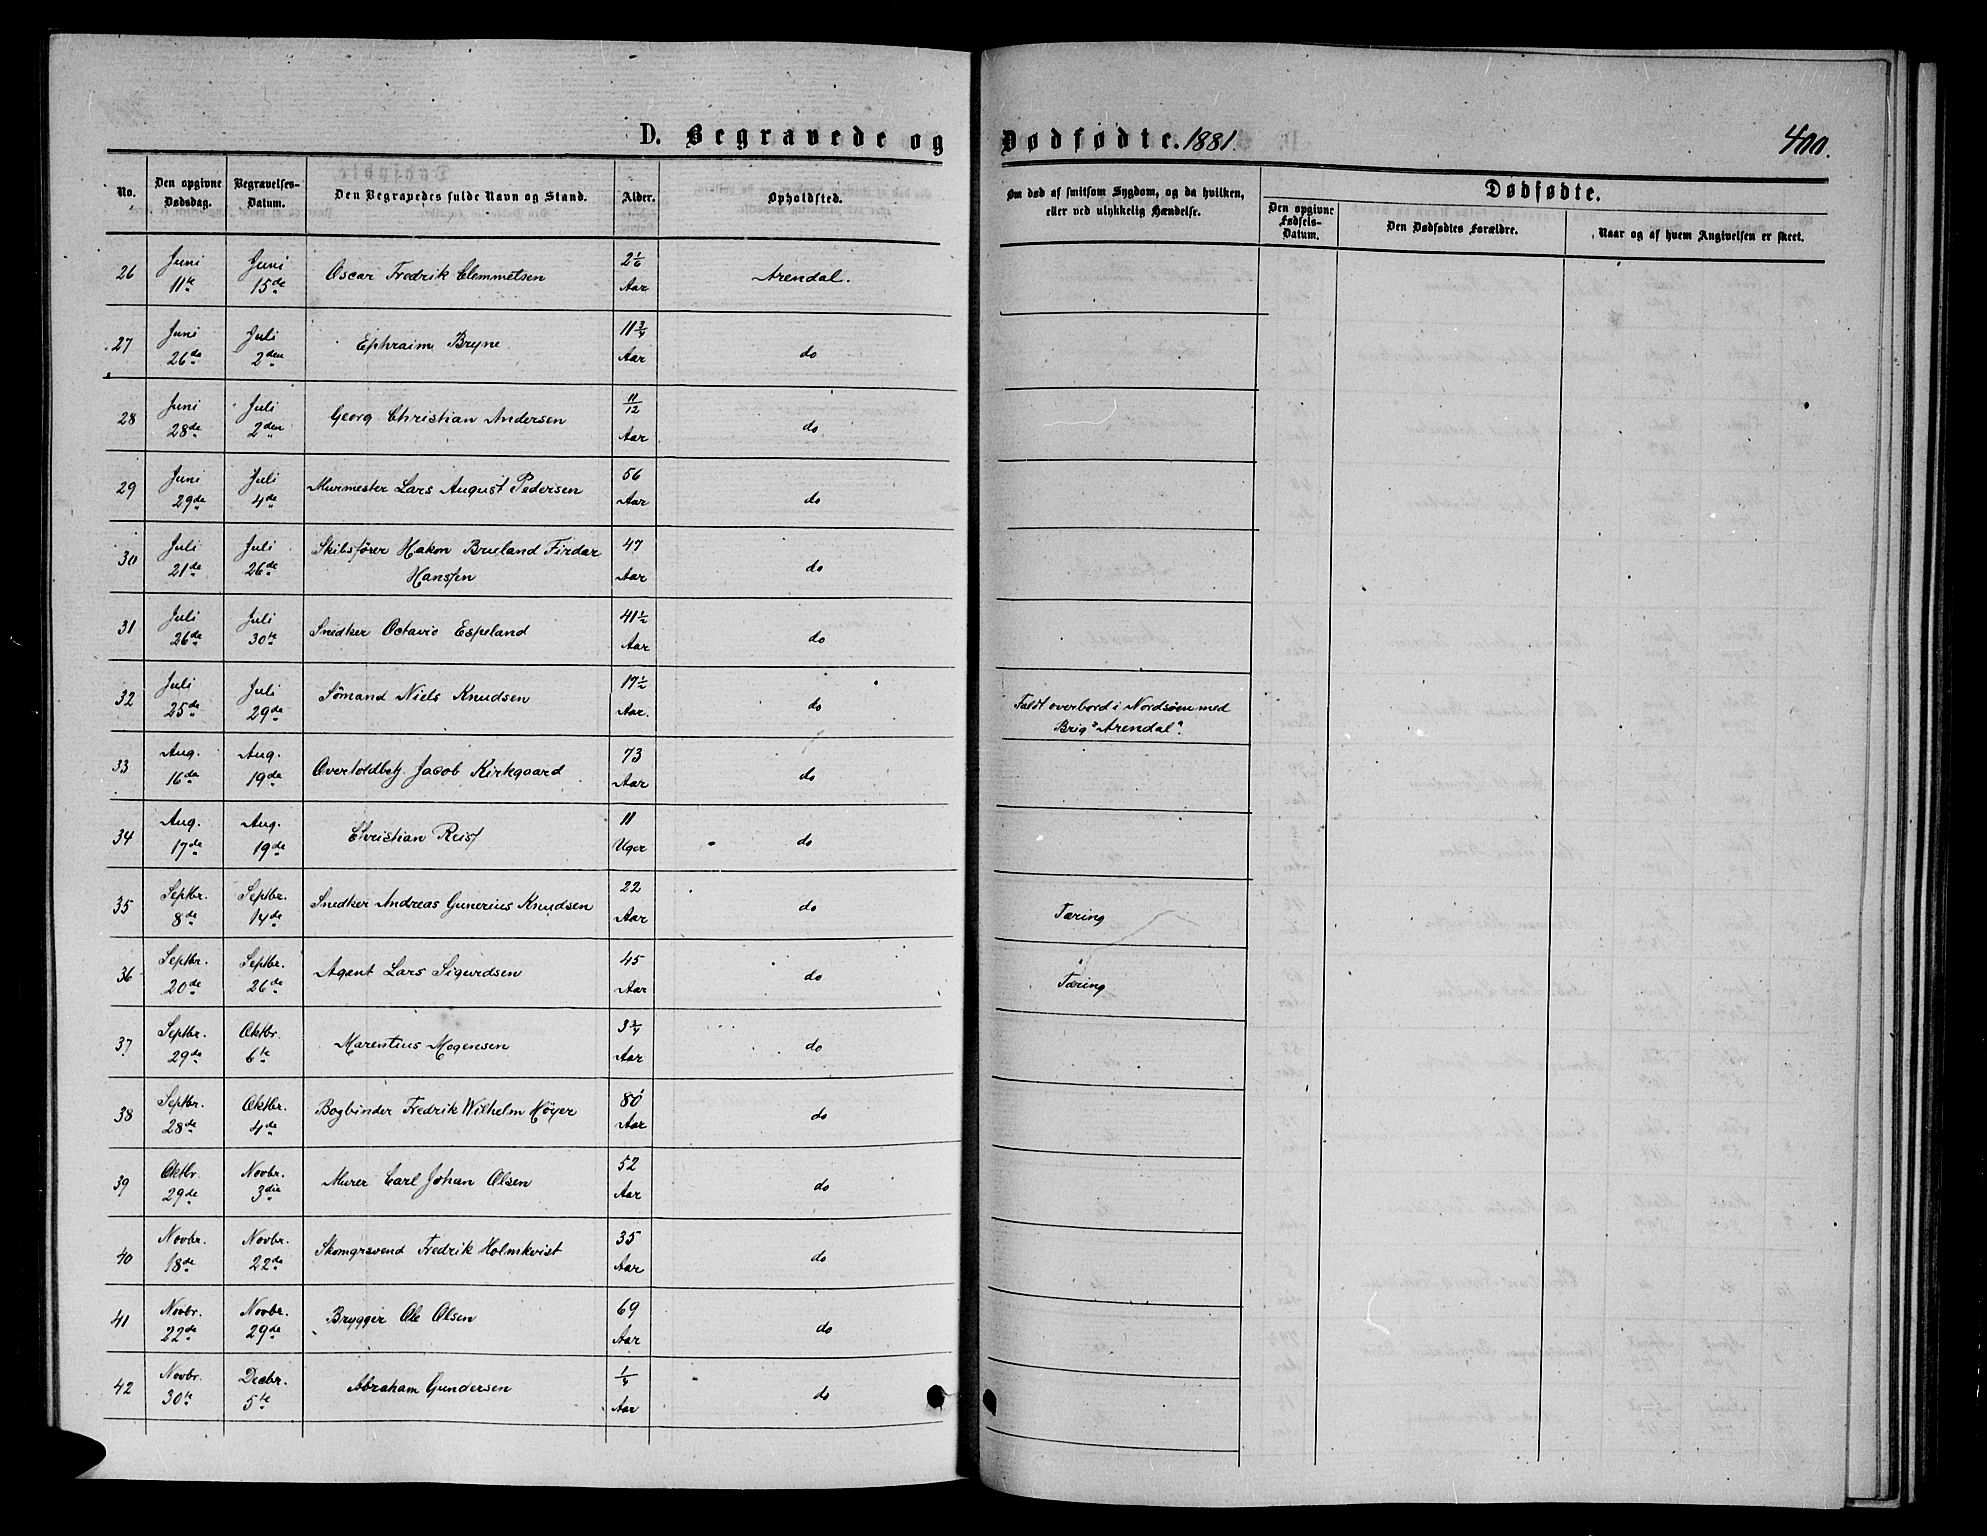 D. Begravede og Dødfødte. 1881. 400.
No. | Den opgivne Dødsdag. | Begravelses-Datum. | Den Begravedes fulde Navn og Stand. | Alder. | Opholdsted. | Om død af smitsom Sygdom, og da hvilken, eller ved ulykkelig Hændelse. | Dødfødte. | Den opgivne Fødsels-Datum. | Den Dødfødtes Forældre. | Naar og af hvem Angivelsen er skeet.
26 | Juni 11te | Juni 15de | Oscar Fredrik Clemmetsen | 2 1/6 Aar | Arendal.
27 | Juni 26de | Juli 2den | Ephraim Bryne | 11 3/4 Aar | do
28 | Juni 28de | Juli 2den | Georg Christian Andersen | 11/12 Aar | do
29 | Juni 29de | Juli 4de | Murmester Lars August Pedersen | 56 Aar | do
30 | Juli 21de | Juli 26de | Skibsfører Hakon Brueland Firdar Hanssen | 47 Aar | do
31 | Juli 26de | Juli 30te | Snedker Octavio Espeland | 41 1/2 Aar | do
32 | Juli 25de | Juli 29de | Sømand Niels Knudsen | 17 1/2 Aar. | do | Faldt overbord i Nordsøen med Brig "Arendal".
33 | Aug. 16de | Aug. 19de | Overtoldbetj. Jacob Kirkgaard | 73 Aar | do
34 | Aug. 17de | Aug. 19de | Christian Reist | 11 Uger | do
35 | Septbr. 8de | Septbr. 14de | Snedker Andreas Gunerius Knudsen | 22 Aar | do | Tæring
36 | Septbr. 20de | Septbr. 26de | Agent Lars Sigurdsen | 45 Aar | do | Tæring
37 | Septbr. 29de | Oktbr. 6te | Marentius Mogensen | 3 3/4 Aar | do
38 | Septbr. 28de | Oktbr. 4de | Bogbinder Fredrik Wilhelm Høyer | 80 Aar | do
39 | Oktbr. 29de | Novbr. 3die | Murer Carl Johan Olsen | 52 Aar | do
40 | Novbr. 18de | Novbr. 22de | Skomgrsvend Fredrik Holmkvist | 35 Aar | do
41 | Novbr. 22de | Novbr. 29de | Brygger Ole Olsen | 69 Aar | do
42 | Novbr. 30te | Decbr. 5te | Abraham Gundersen | 1/4 Aar | do